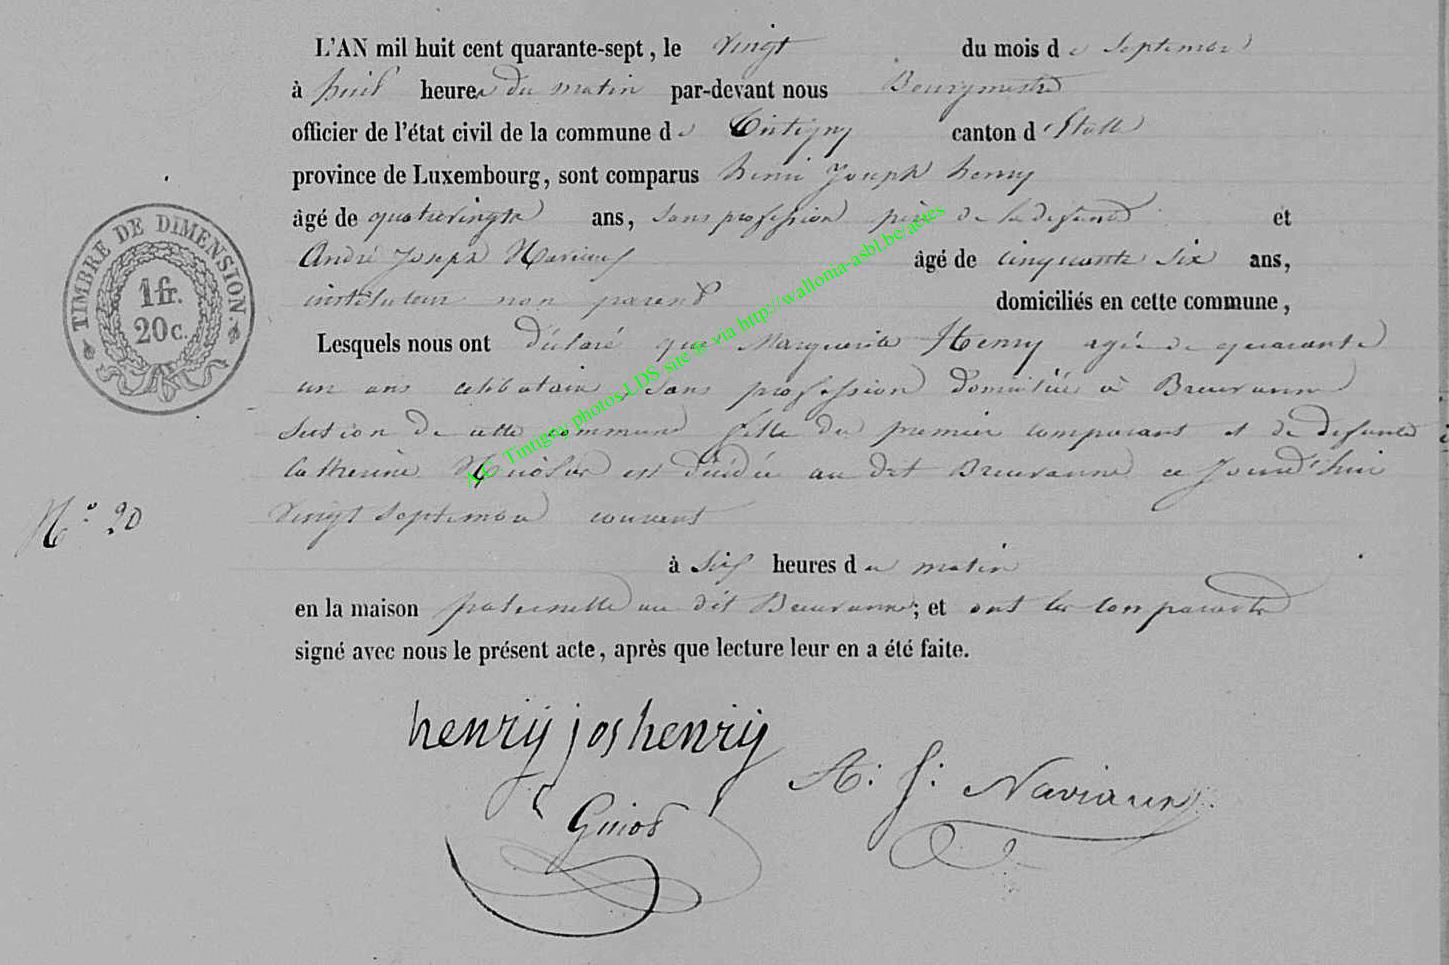 L'AN mil huit cent quarante-sept, le vingt du mois de septembre
à huit heures du matin par-devant nous Bourgmestre
officier de l'état civil de la commune de Tintigny canton d'Etalle
province de Luxembourg, sont comparus henri Joseph henry
âgé de quatrevingts ans, sans profession père de la defunte et
André Joseph Naviaux âgé de cinquante six ans,
instituteur non parent domiciliés en cette commune,
Lesquels nous ont déclaré que Marguerite Henry agée de quarante
un ans celibataire, sans profession domiciliée à Breuvanne
section de cette commune fille du premier comparant et de defunte
Catherine est décédée au dit Breuvanne ce jourd'hui
vingt septembre courant
à six heures du matin
en la maison paternelle au dit Breuvanne; et ont les comparants
signé avec nous le présent acte, après que lecture leur en a été faite.
TIMBRE DE DIMENSION.
1 fr.
20 c.
N° 20
henrÿ jos henrÿ
A: J: Naviaux
Guiot
A.E. Tintigny photos LDS site @ via http://wallonia-asbl.be/actes